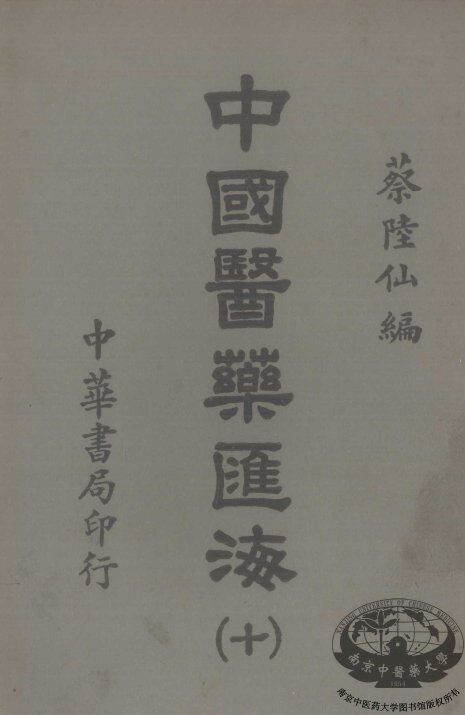 蔡陸仙編
中國醫藥匯海
(十)
中華書局印行
NANJING UNIVERSITY OF CHINESE MEDICINE
南京中醫藥大學
1954
南京中医药大学图书馆版权所有